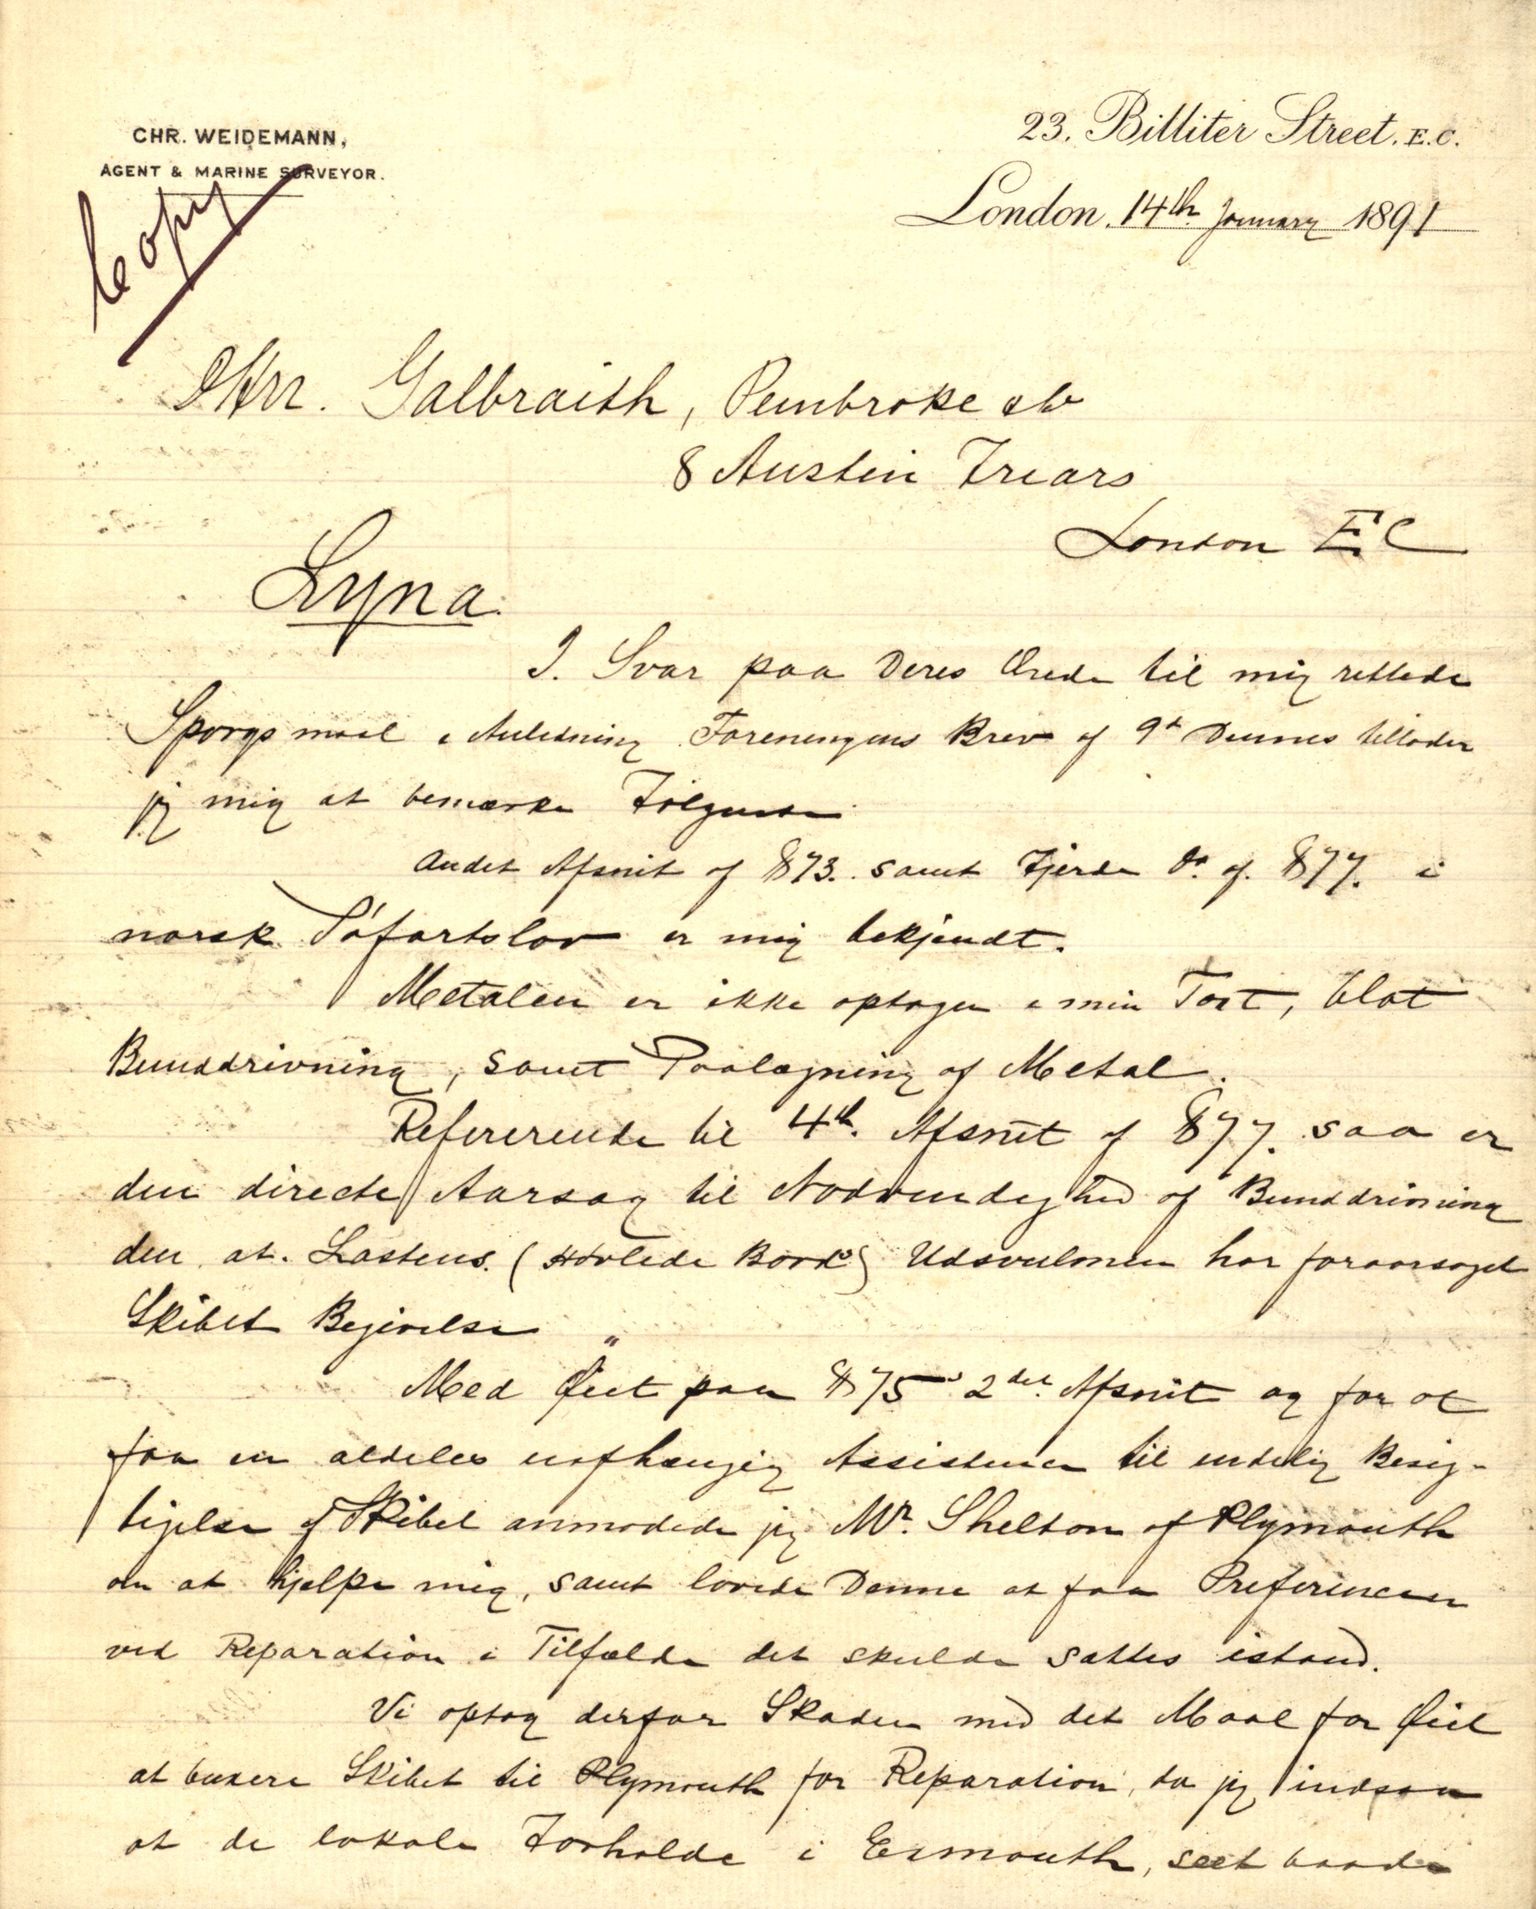 CHR. WEIDEMANN,
AGENT & MARINE SURVEYOR.
Copy
23. Billiter Street. E.C.
London. 14th January 1891
DHrr. Galbraith, Pembroke & Co
8 Austin Friars
London EC
Lyna.
I. Svar paa Deres Ærede til mig rettede
Spørgsmaal i Anledning Foreningens Brev af 9d Dennes tillader
jeg mig at bemærke Følgende
Andet Afsnit af §73. samt Fjerde Do. af. §77. i
norsk Søfartslov er mig bekjendt.
Metalen er ikke optagen i min Taxt, blot
Bunddrivning, samt Paalægning af Metal.
Refererende til 4th. Afsnit af §77. saa er
den directe Aarsag til Nødvendighed af Bunddrivning
den at. Lastens. (Høvlede Bord) Udsvulmen har foraarsaget
Skibet Begivelse
Med Øiet paa §75 2det Afsnit og for at
faa en aldeles uafhængig Assistence til endelig Besig-
tigelse af Skibet anmodede jeg Mr. Shelton af Plymouth
om at hjelpe mig, samt lovede Denne at faa Preferencen
ved Reparation i Tilfælde det skulde sættes istand.
Vi optog derfor Skaden med det Maal for Øiet
at buxere Skibet til Plymouth for Reparation, da jeg indsaa
at de lokale Forholde i Exmouth, seet baade